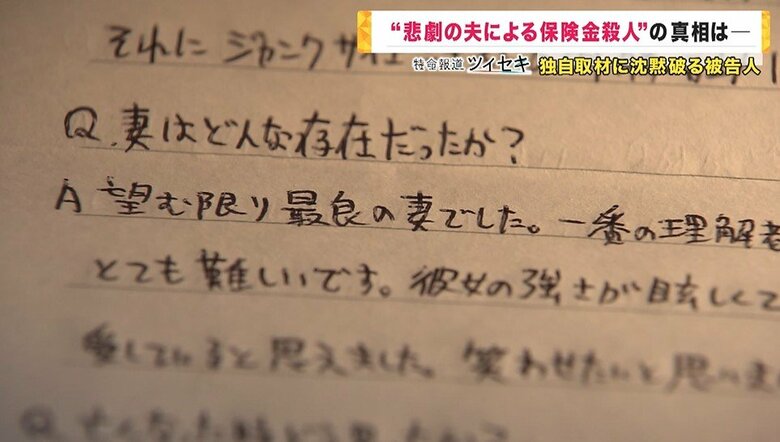 “悲劇の夫による保険金殺人”の真相は―
特命報道 ツイセキ 独自取材に沈黙破る被告人
それに ジャンクサイ
Q.妻はどんな存在だったか?
A 望む限り最良の妻でした。一番の理解者
とても難しいです。彼女の強さが眩しくて
愛していると思えました。笑わせたいと思いま